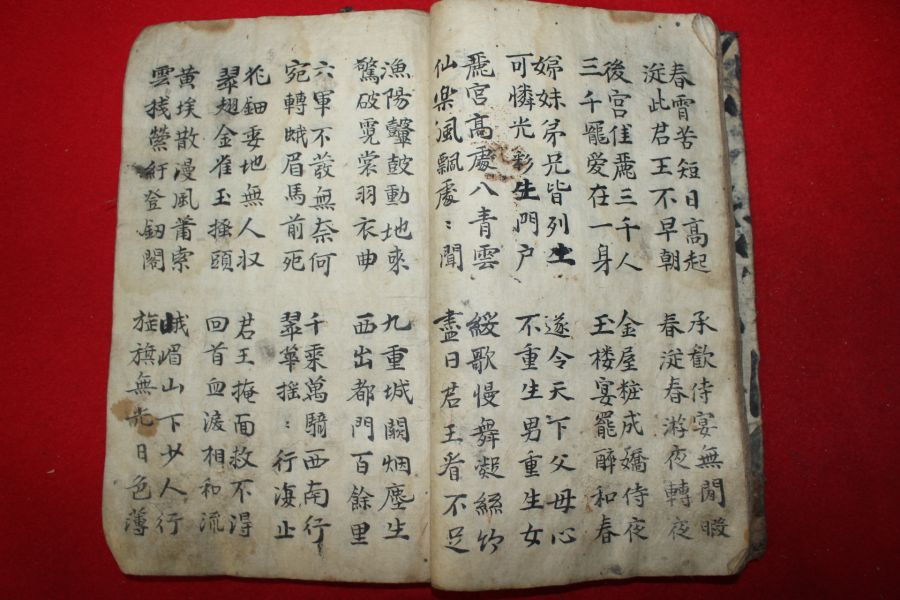 春霄苦短日高起
淀此君王不早朝
承歡侍宴無閒暇
春淀春游夜轉夜
後宮佳麗三千人
三千寵爱在一身
金屋粧成嬌侍夜
玉楼宴罷醉和春
娣妹弟兄皆列土
可憐光彩生門户
遂令天下父母心
不重生男重生女
麗宮高處八青雲
仙楽風飄處〻聞
緩歌慢舞凝絲竹
盡日君王看不足
漁陽鼙鼓動地来
驚破霓裳羽衣曲
九重城闕烟塵生
西出都門百餘里
六軍不發無奈何
宛轉蛾眉馬前死
千乘萬騎西南行
翠華搖〻行復止
花鈿委地無人収
翠翅金雀玉搔頭
君王掩面救不得
回首血淚相和流
黄埃散漫風蕭索
雲棧縈紆登釰閣
峨嵋山下少人行
旌旗無光日色薄